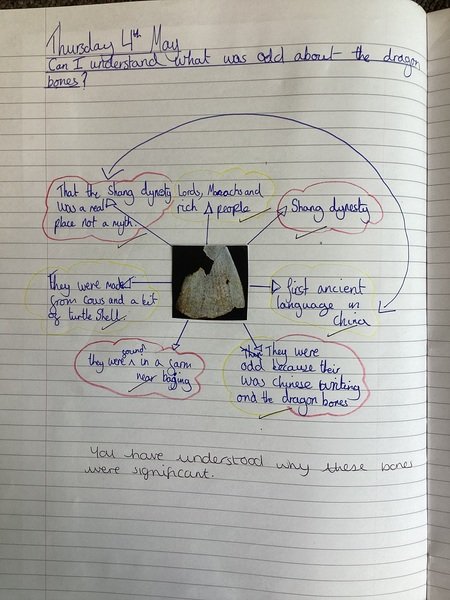 Thursday 4th May
Can I understand what was odd about the dragon
bones?
That the Shang dynesty
was a real
place not a myth.
Lords, Monachs and
rich people
Shang dynesty
They were made
from cows and a bit
of turtle shell.
first ancient
language in
China
found
they were ^ in a farm
near
They were
odd because their
was chynese
and the dragon bones
You have understood why these bones
were significant.